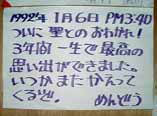 1992年 1月6日 PM3:40
ついに 聖とのおわかれ!
3年間 一生で最高の
思い出ができました。
いつかまたかえって
くるぞ。 めんどう